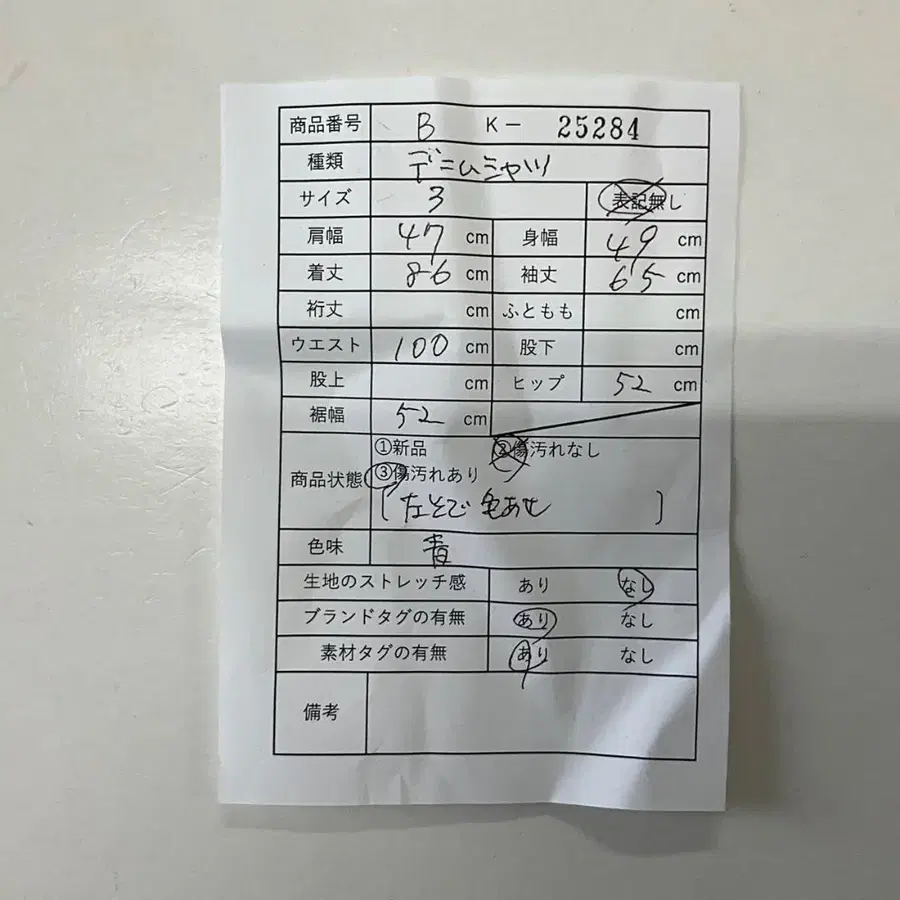 商品番号 B K－ 25284
種類 デニムシャツ
サイズ 3 表記無し
肩幅 47 cm 身幅 49 cm
着丈 86 cm 袖丈 65 cm
裄丈 cm ふともも cm
ウエスト 100 cm 股下 cm
股上 cm ヒップ 52 cm
裾幅 52 cm
商品状態 ①新品 ②傷汚れなし
③傷汚れあり
[左そで 色あせ]
色味 青
生地のストレッチ感 あり なし
ブランドタグの有無 あり なし
素材タグの有無 あり なし
備考